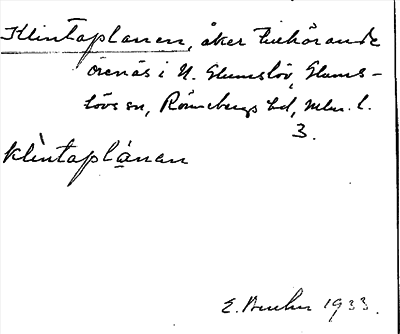 Klintaplanen, åker tillhörande
Örenäs i N. Glumslöv, Glums-
lövs sn, Rönnebergs hd, Mlm. l.
3.
klìntaplánan
E. 1933.